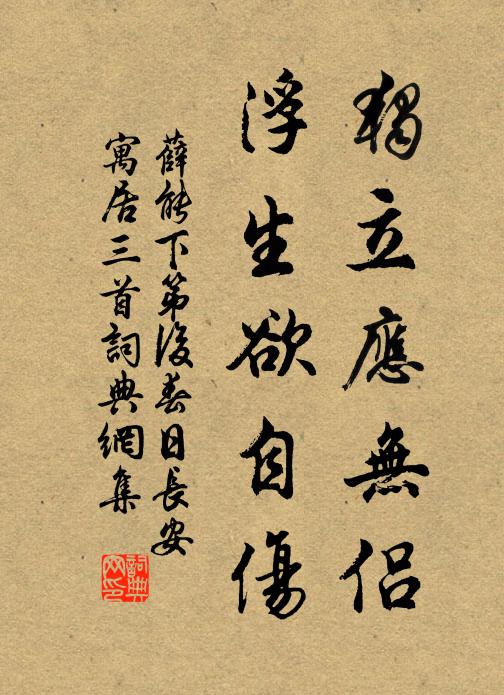 獨立應無侶
浮生欲自傷
薛能下第後春日長安
寓居三首詞典網集
詞典网印